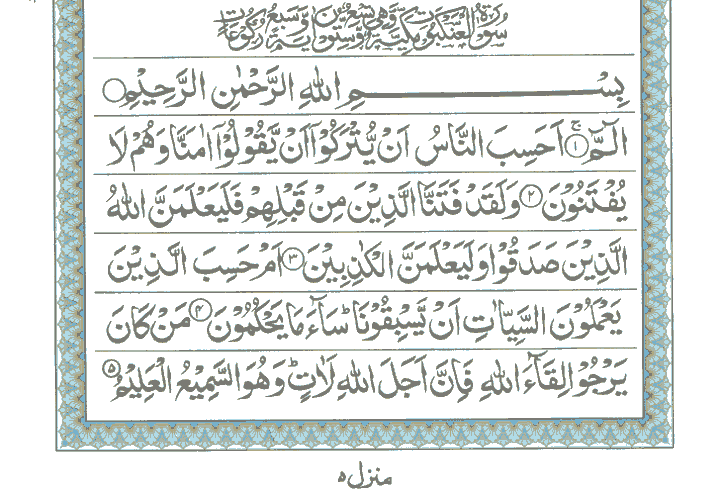 سُوْرَةُ الْعَنْكَبُوْتِ مَكِّيَّةٌ وَّهِيَ تِسْعٌ وَّسِتُّوْنَ اٰيَةً وَّسَبْعُ رُكُوْعَاتٍ
بِسْمِ اللهِ الرَّحْمٰنِ الرَّحِيْمِ
الٓمّٓ ۚ﴿۱﴾ اَحَسِبَ النَّاسُ اَنْ يُّتْرَكُوْۤا اَنْ يَّقُوْلُوْۤا اٰمَنَّا وَهُمْ لَا
يُفْتَنُوْنَ ﴿۲﴾ وَلَقَدْ فَتَنَّا الَّذِيْنَ مِنْ قَبْلِهِمْ فَلَيَعْلَمَنَّ اللهُ
الَّذِيْنَ صَدَقُوْا وَلَيَعْلَمَنَّ الْكٰذِبِيْنَ ﴿۳﴾ اَمْ حَسِبَ الَّذِيْنَ
يَعْمَلُوْنَ السَّيِّاٰتِ اَنْ يَّسْبِقُوْنَا ؕ سَآءَ مَا يَحْكُمُوْنَ ﴿۴﴾ مَنْ كَانَ
يَرْجُوْا لِقَآءَ اللهِ فَاِنَّ اَجَلَ اللهِ لَاٰتٍ ؕ وَهُوَ السَّمِيْعُ الْعَلِيْمُ ﴿۵﴾
منزل ۵